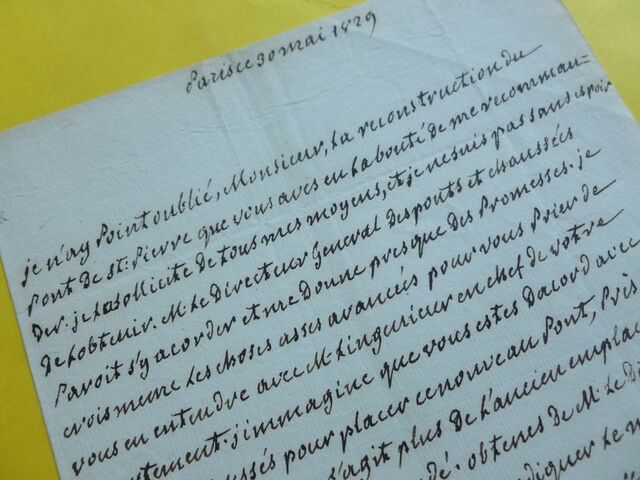 Paris ce 30 mai 1829
je n'ay point oublié, Monsieur, la reconstruction du
Pont de St. Pierre que vous aves eu la bouté de me recomman=
der. je la sollicite de tous mes moyens, et je ne suis pas sans espoir
de l'obtenir. M. le Directeur General des ponts et chaussées
Paroit s'y acorder et me donne presque des Promesses. je
crois meme les choses asses avancées pour vous Prier de
vous en entendre avec M. l'ingenieur en chef de votre
tement. j'immagine que vous estes Dacord avec
ressés pour placer ce nouveau Pont, Près
s'agit plus de l'ancien emplac
dé. obtenes de M. le Di
diquer le